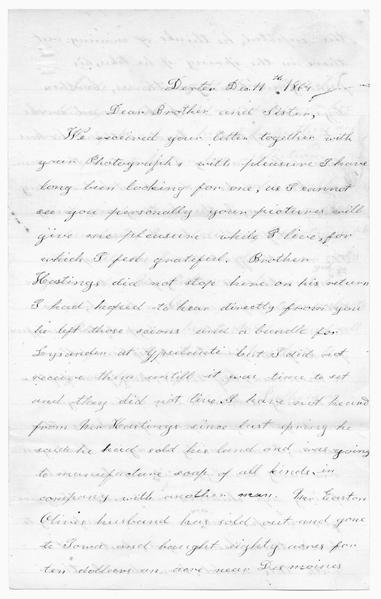 Dexter Dec. 11th 1864
Dear Brother and Sister,
We received your letter together with
your Photographs with pleasure I have
long been looking for one, as I cannot
see you personally your pictures will
give me pleasure while I live, for
which I feel grateful. Brother
Hastings did not stop here on his return
I had hoped to hear directly from you
he left those scions and a bundle for
Lysander at Ypsilanti but I did not
receive them untill it was time to set
and they did not live. I have not heard
from Mr Hastings since last spring he
said he had sold his land and was going
to manufacture soap of all kinds in
company with another man. Mr. Easton
Olives husband has sold out and gone
to Iowa and bought eighty acres for
ten dollars an acre near Desmoines